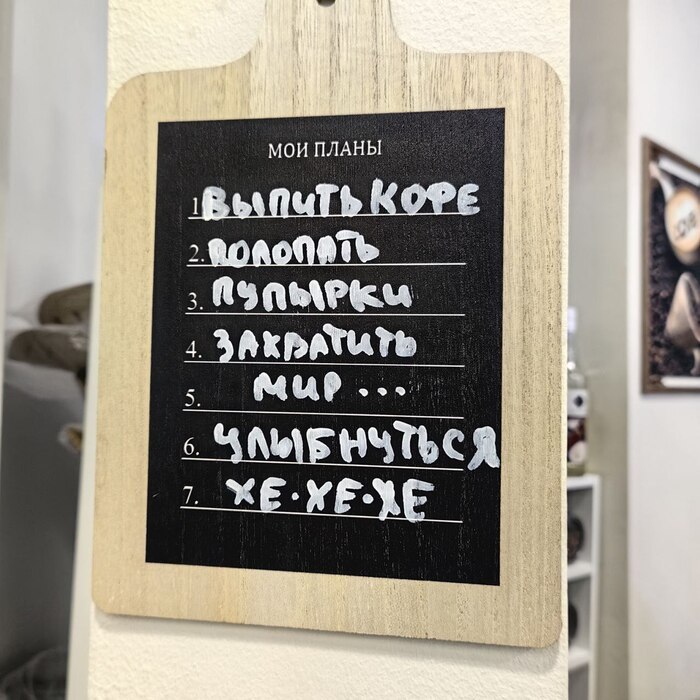 МОИ ПЛАНЫ
1. ВЫПИТЬ КОФЕ
2. ПОЛОПАТЬ
3. ПУПЫРКИ
4. ЗАХВАТИТЬ
5. МИР ...
6. УЛЫБНУТЬСЯ
7. ХЕ·ХЕ·ХЕ